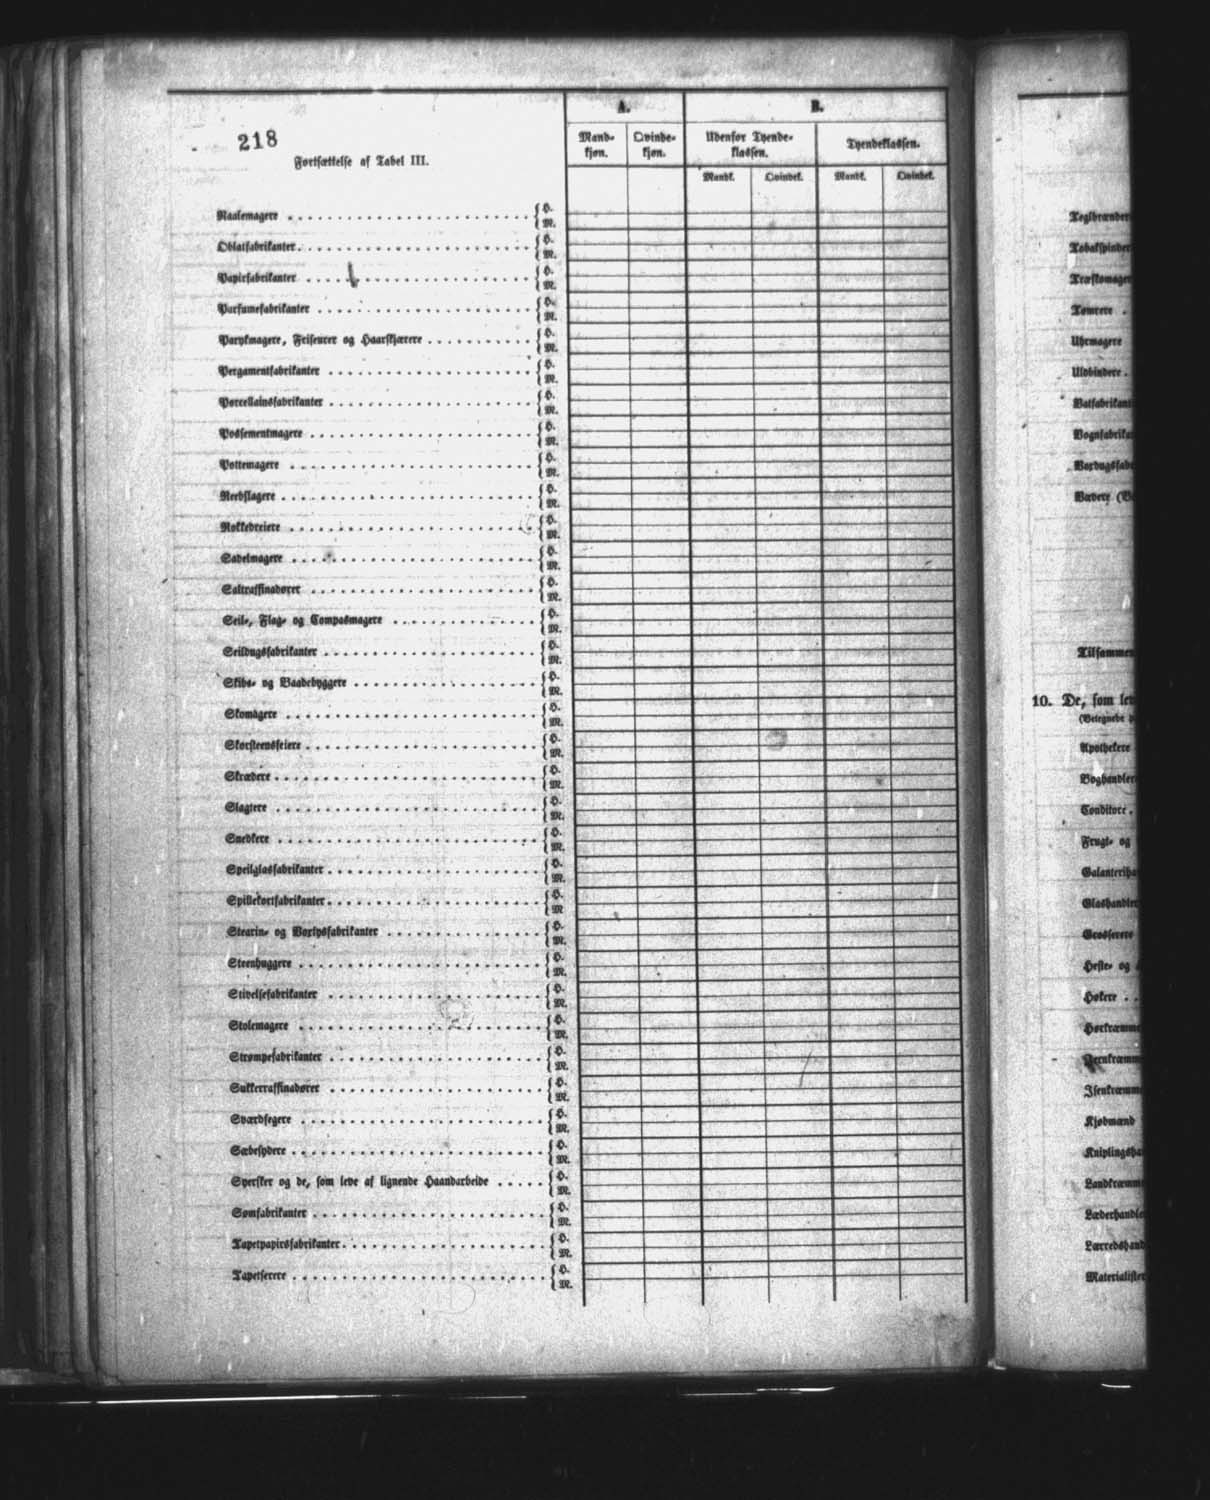 218
Fortsættelse af Tabel III.
A.
B.
Mand-
kjøn.
Qvinde-
kjøn.
Udenfor Tyende-
klassen.
Tyendeklassen.
Mandk.
Qvindek.
Mandk.
Qvindek.
Naalemagere H. M.
Oblatfabrikanter H. M.
Papirfabrikanter H. M.
Parfumefabrikanter H. M.
Parykmagere, Friseurer og Haarskjærere H. M.
Pergamentfabrikanter H. M.
Porcellainsfabrikanter H. M.
Possementmagere H. M.
Pottemagere H. M.
Reebslagere H. M.
Rokkedreiere H. M.
Sadelmagere H. M.
Saltraffinadører H. M.
Seil-, Flag- og Compasmagere H. M.
Seildugsfabrikanter H. M.
Skibs- og Baadebyggere H. M.
Skomagere H. M.
Skorsteensfeiere H. M.
Skrædere H. M.
Slagtere H. M.
Snedkere H. M.
Speilglasfabrikanter H. M.
Spillekortfabrikanter H. M
Stearin- og Voxlysfabrikanter H. M.
Steenhuggere H. M.
Stivelsefabrikanter H. M.
Stolemagere H. M.
Strømpefabrikanter H. M.
Sukkerraffinadører H. M.
Sværdfegere H. M.
Sæbesydere H. M.
Syersker og de, som leve af lignende Haandarbeide H. M.
Sømfabrikanter H. M.
Tapetpapirsfabrikanter H. M.
Tapetserere H. M.
Teglbrænder
Tobakspinder
Træskomager
Tømrere
Uhrmagere
Uldbindere
Vatfabrikant
Vognfabrika
Voxdugsfabr
Vævere
Tilsammen
10. De, som lev
Apothekere
Boghandler
Conditore
Frugt- og
Galanteriha
Glashandler
Grosserere
Heste- og
Høkere
Hørkræmme
Jernkræmm
Isenkræmm
Kjødmænd
Kniplingsha
Landkræmm
Læderhandle
Lærredshand
Materialister